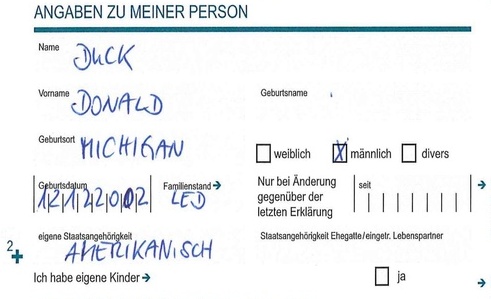 ANGABEN ZU MEINER PERSON
Name
DUCK
Vorname
DONALD
Geburtsname
Geburtsort
MICHIGAN
weiblich X männlich divers
Geburtsdatum
Familienstand →
LED
Nur bei Änderung
gegenüber der
letzten Erklärung
seit
→
2
+
eigene Staatsangehörigkeit
AMERIKANISCH
Staatsangehörigkeit Ehegatte/eingetr. Lebenspartner
→
Ich habe eigene Kinder →
ja